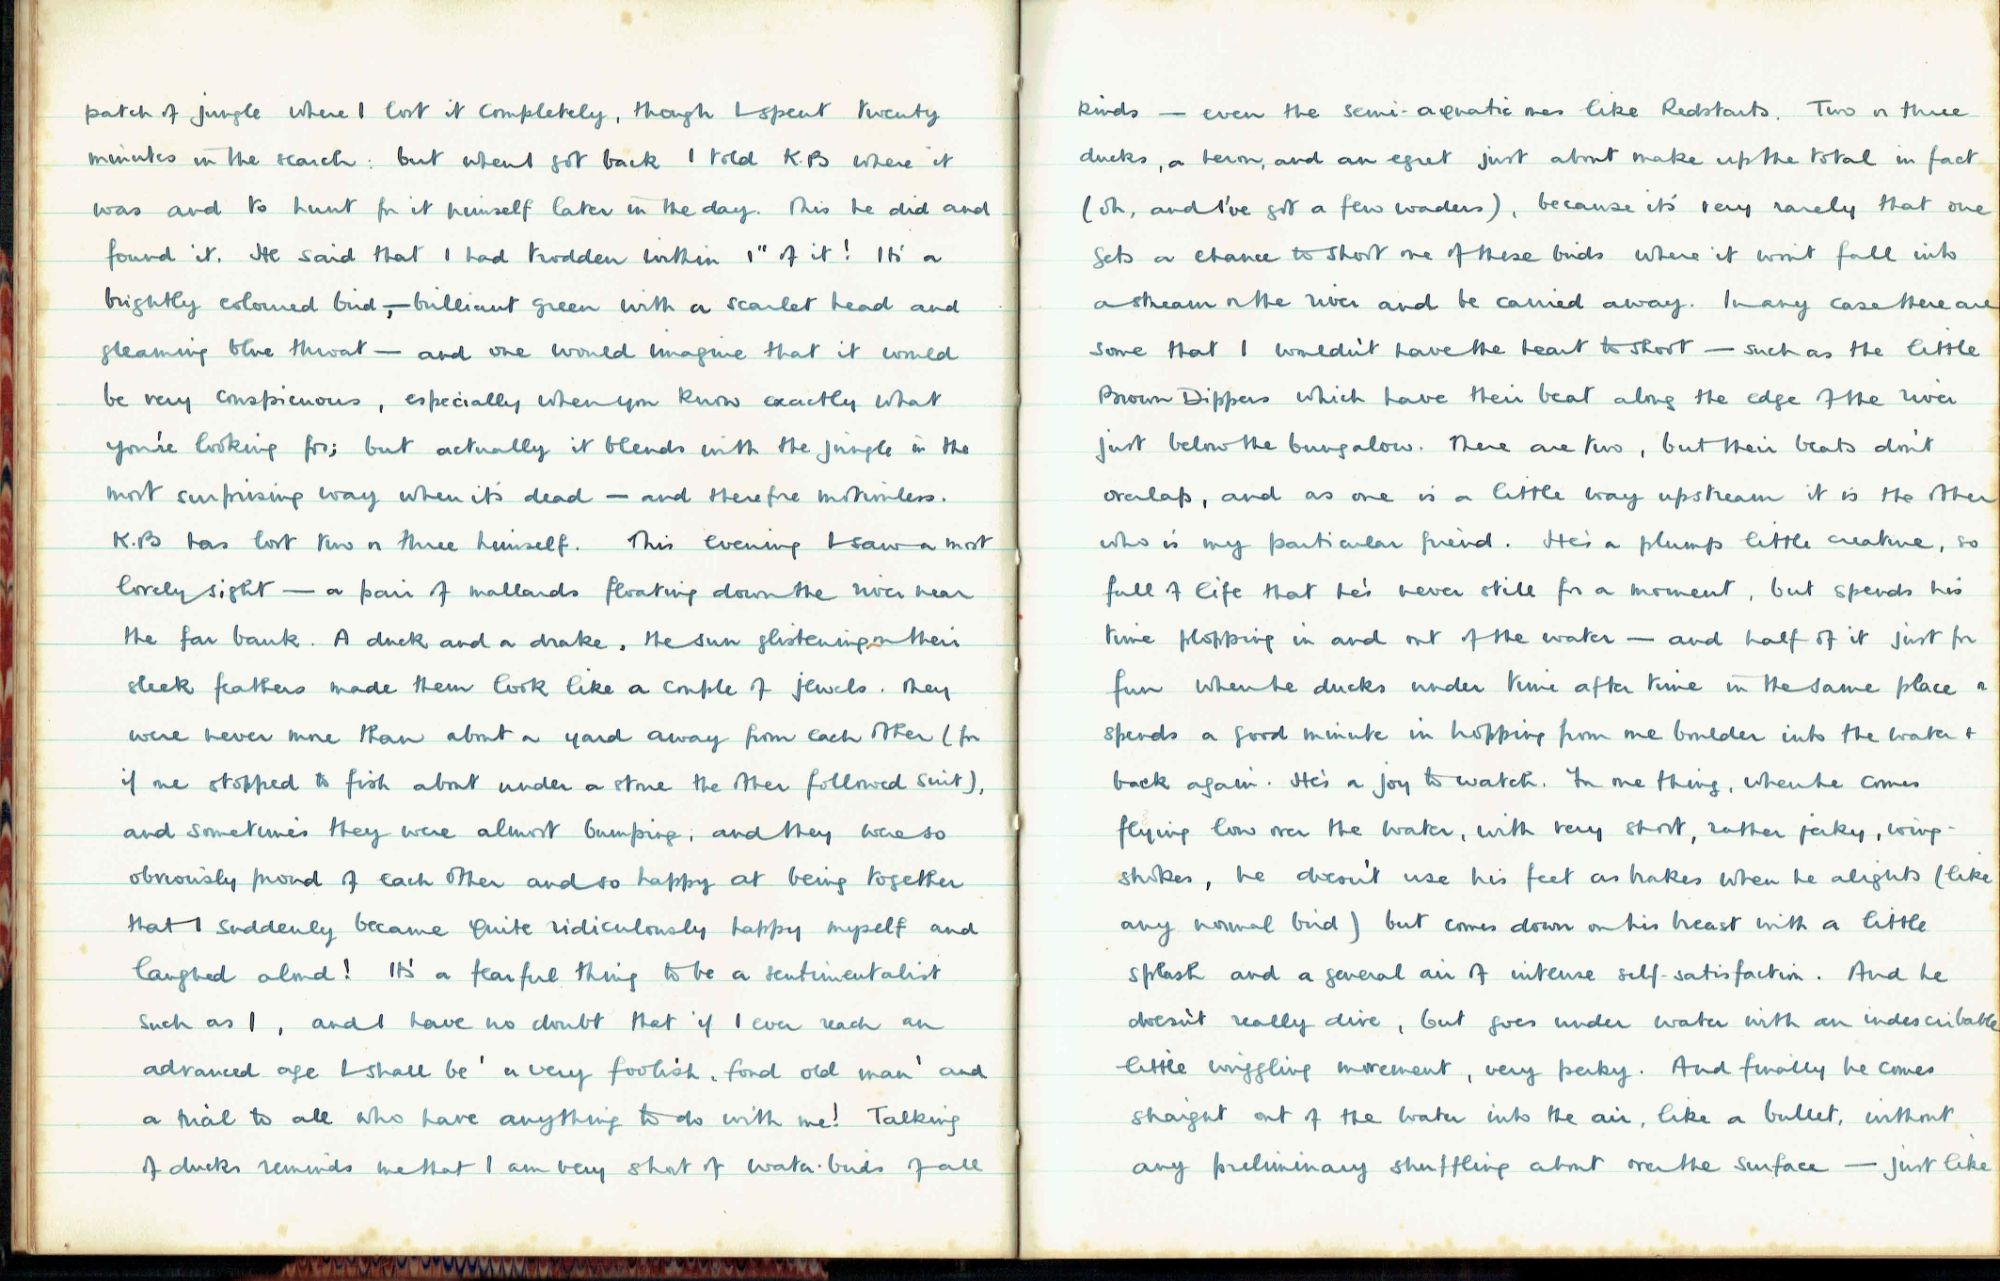 patch of jungle where I lost it completely, though I spent twenty
minutes in the search: but when I got back I told K.B where it
was and to hunt for it himself later in the day. This he did and
found it. He said that I had trodden within 1" of it! It's a
brightly coloured bird, — brilliant green with a scarlet head and
gleaming blue throat — and one would imagine that it would
be very conspicuous, especially when you know exactly what
you're looking for; but actually it blends with the jungle in the
most surprising way when it's dead — and therefore motionless.
K.B has lost two or three himself. This evening I saw a most
lovely sight — a pair of mallards floating down the river near
the far bank. A duck and a drake, the sun glistening on their
sleek feathers made them look like a couple of jewels. They
were never more than about a yard away from each other (for
if one stopped to fish about under a stone the other followed suit),
and sometimes they were almost bumping; and they were so
obviously proud of each other and so happy at being together
that I suddenly became quite ridiculously happy myself and
laughed aloud! It's a fearful thing to be a sentimentalist
such as I, and I have no doubt that if I ever reach an
advanced age I shall be 'a very foolish, fond old man' and
a trial to all who have anything to do with me! Talking
of ducks reminds me that I am very short of water-birds of all
kinds — even the semi-aquatic ones like Redstarts. Two or three
ducks, a heron, and an egret just about make up the total in fact
(oh, and I've got a few waders), because it's very rarely that one
gets a chance to shoot one of these birds where it won't fall into
a stream or the river and be carried away. In any case there are
some that I wouldn't have the heart to shoot — such as the little
Brown Dippers which have their beat along the edge of the river
just below the bungalow. There are two, but their beats don't
overlap, and as one is a little way upstream it is the other
who is my particular friend. He's a plump little creature, so
full of life that he's never still for a moment, but spends his
time plopping in and out of the water — and half of it just for
fun when he ducks under time after time in the same place &
spends a good minute in hopping from one boulder into the water +
back again. He's a joy to watch. For one thing, when he comes
flying low over the water, with very short, rather jerky, wing-
strokes, he doesn't use his feet as brakes when he alights (like
any normal bird) but comes down on his breast with a little
splash and a general air of intense self-satisfaction. And he
doesn't really dive, but goes under water with an indescribable
little wriggling movement, very perky. And finally he comes
straight out of the water into the air, like a bullet, without
any preliminary shuffling about over the surface — just like